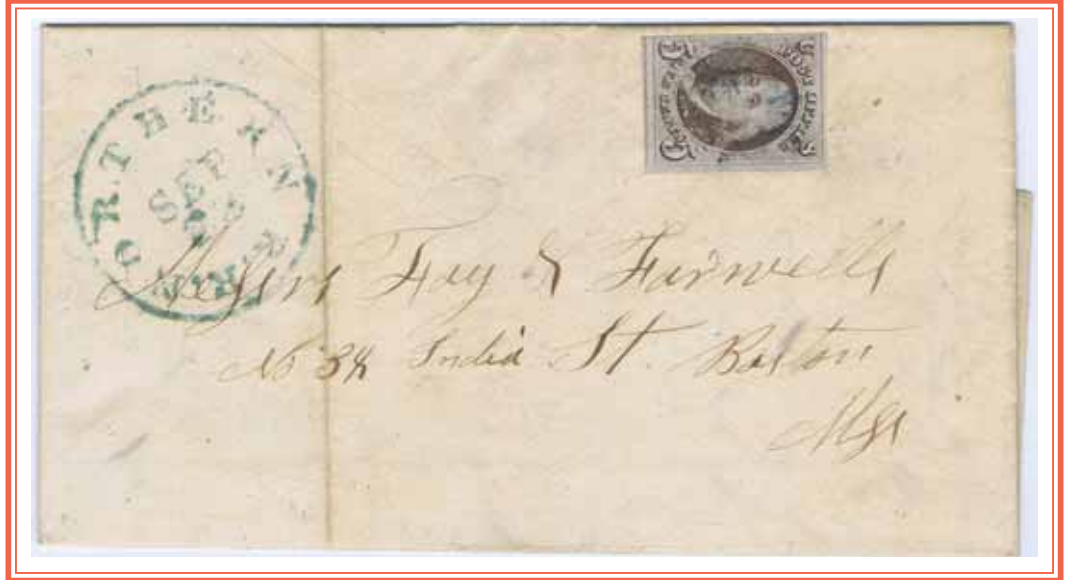 NORTHERN
SEP
POST OFFICE
FIVE CENTS
Messrs Fay & Farwells
No 38 India St. Boston